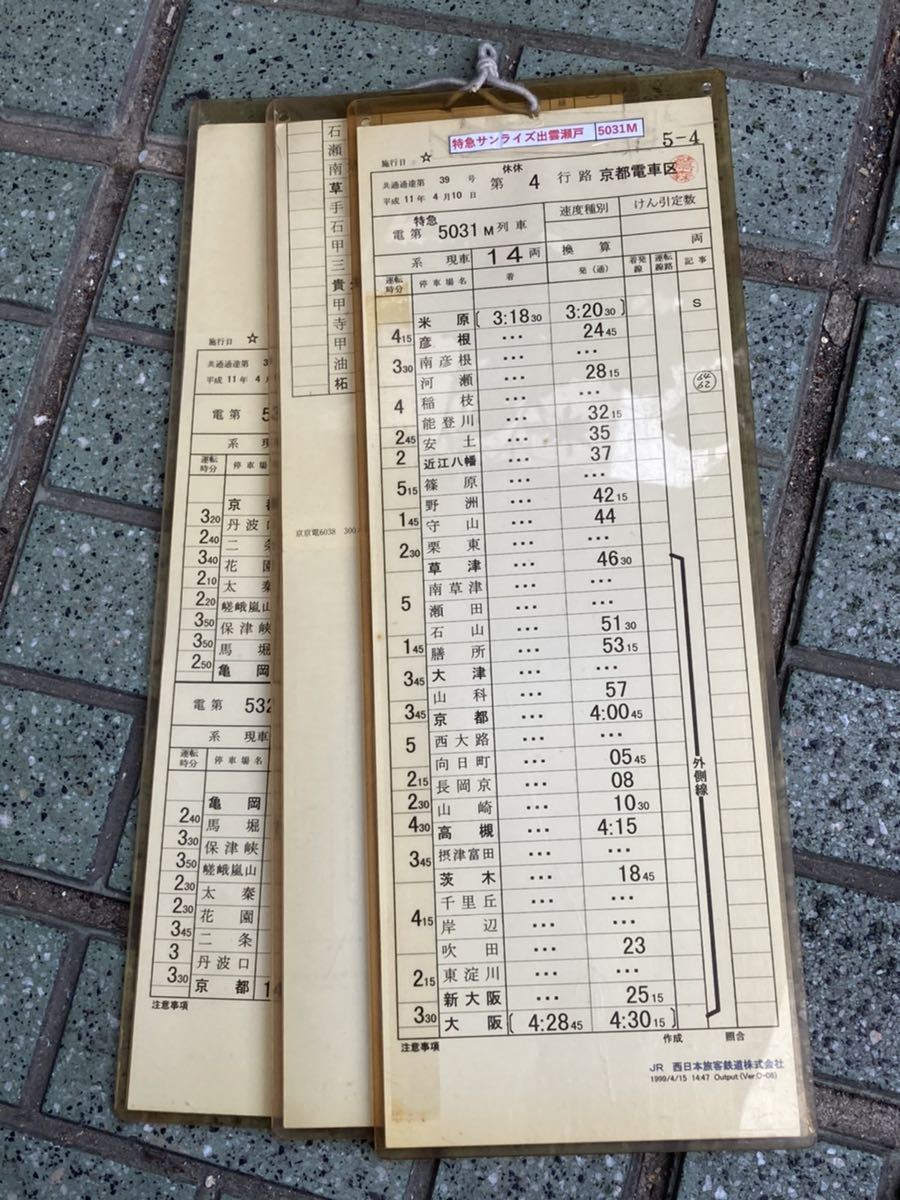 特急サンライズ出雲瀬戸 5031M
5-4
施行日 ☆
共通通達第 39 号 休休
平成11年 4月10日 第 4 行路 京都電車区
特急
電第 5031M列車 速度種別 けん引定数
系 現車 14両 換算 両
運転時分 停車場名 着 発(通) 着発線 運転線路 記事
米原 [3:18 30 3:20 30] S
4 15
彦根 … 24 45
南彦根 … …
3 30
河瀬 … 28 15
稲枝 … …
4
能登川 … 32 15
2 45
安土 … 35
2
近江八幡 … 37
篠原 … …
5 15
野洲 … 42 15
1 45
守山 … 44
栗東 … …
2 30
草津 … 46 30
南草津 … …
5
瀬田 … …
石山 … 51 30
1 45
膳所 … 53 15
大津 … …
3 45
山科 … 57
3 45
京都 … 4:00 45
西大路 … …
5
向日町 … 05 45
2 15
長岡京 … 08
2 30
山崎 … 10 30
4 30
高槻 … 4:15
摂津富田 … …
3 45
茨木 … 18 45
千里丘 … …
4 15
岸辺 … …
吹田 … 23
東淀川 … …
2 15
新大阪 … 25 15
3 30
大阪 [4:28 45 4:30 15]
外側線
注意事項 作成 照合
JR 西日本旅客鉄道株式会社
1999/4/15 14:47 Output (Ver.0-08)
石
瀬
南
草
手
石
甲
三
貴
甲
寺
甲
油
柘
京京電6038 300
施行日 ☆
共通通達第 39
平成11年 4
電第 53
系 現車
運転時分 停車場名
京
3 20
丹波口
2 40
二条
3 40
花園
2 10
太秦
2 20
嵯峨嵐山
3 50
保津峡
3 50
馬堀
2 50
亀岡
電第 532
系 現車
運転時分 停車場名
亀岡
2 40
馬堀
3 30
保津峡
3 50
嵯峨嵐山
2 30
太秦
2 30
花園
3 45
二条
3
丹波口
3 30
京都 14
注意事項